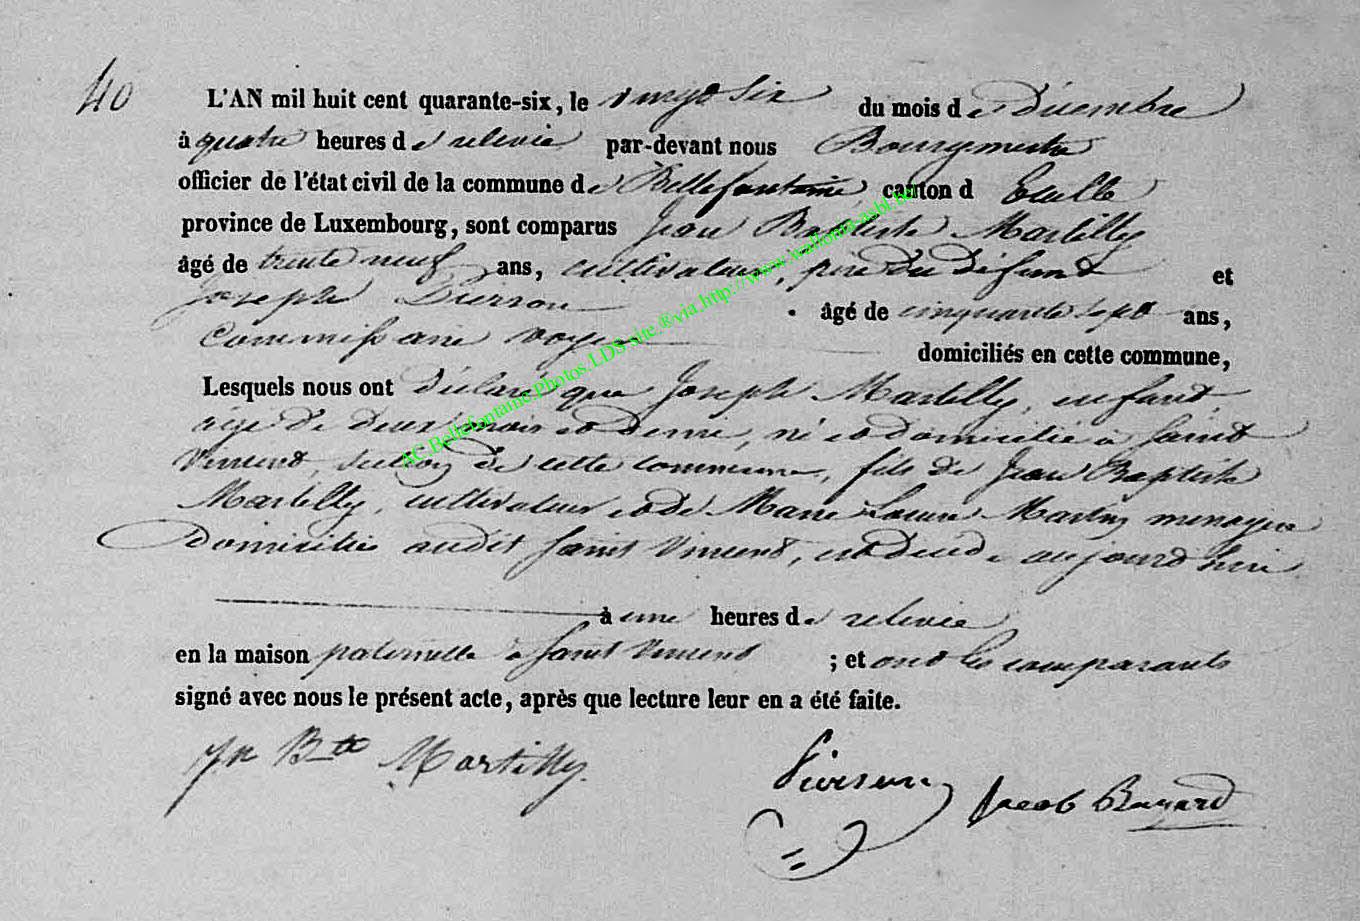 40
L'AN mil huit cent quarante-six, le vingt six du mois de Décembre
à quatre heures de relevée par-devant nous Bourgmestre
officier de l'état civil de la commune de Bellefontaine, canton d'Etalle
province de Luxembourg, sont comparus Jean Baptiste Martilly
âgé de trente neuf ans, cultivateur, père du défunt et
Joseph Pierson âgé de cinquante sept ans,
Commissaire voyer domiciliés en cette commune,
Lesquels nous ont déclaré que Joseph Martilly, enfant
âgé de deux mois et demi, né et domicilié à Saint
Vincent, section de cette commune, fils de Jean Baptiste
Martilly, cultivateur et de Marie Louise Martin ménagère
Domiciliés audit Saint Vincent, est décédé aujourd'hui
à une heures de relevée
en la maison paternelle à Saint Vincent ; et ont les comparants
signé avec nous le présent acte, après que lecture leur en a été faite.
Jn Bte Martilly Pierson Jacob
AC.Bellefontaine.Photos.LDS site.®via.http://www.wallonia-asbl.be